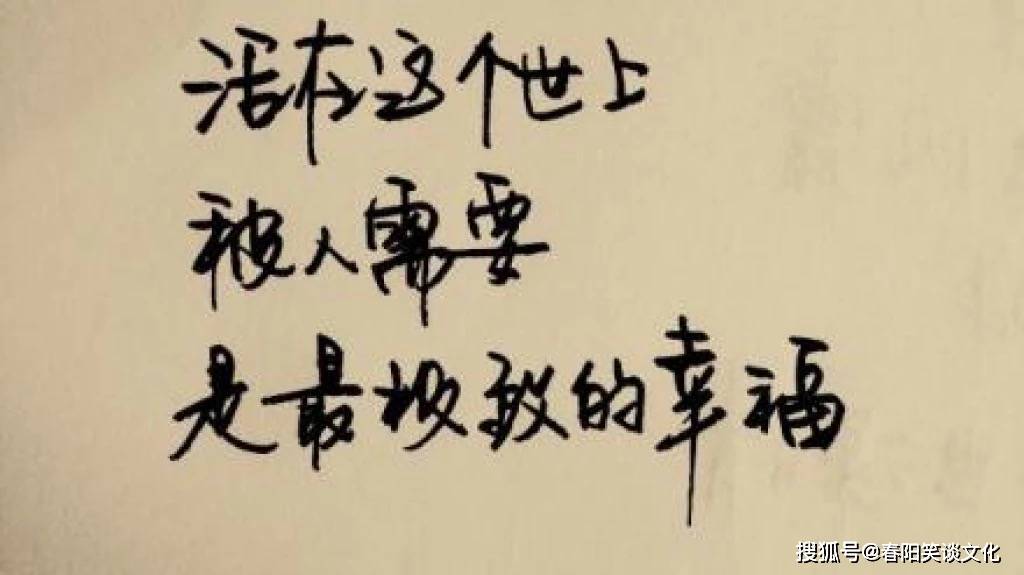 活在这个世上
被人需要
是最极致的幸福
搜狐号@春阳笑谈文化